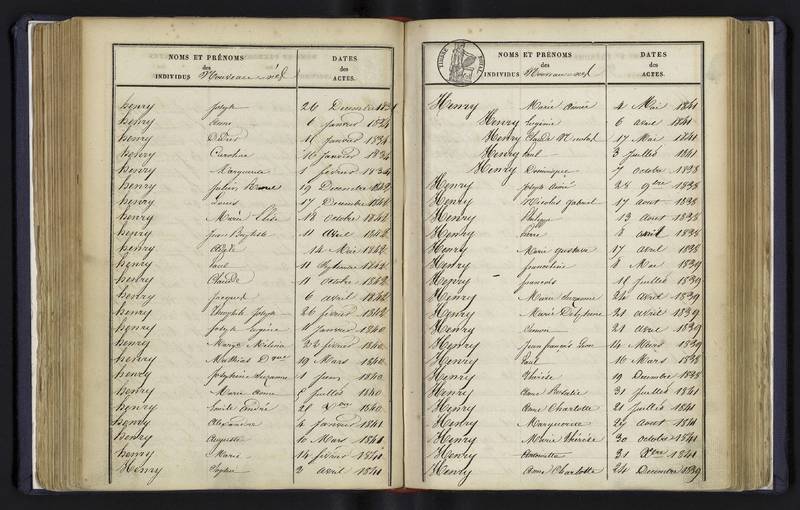 NOMS ET PRÉNOMS
des
INDIVIDUS Nouveau-nés
DATES
des
ACTES.
henry Joseph 26 Decembre
henry Anne 6 janvier 1834
henry Didier 11 janvier 1834
henry Caroline 16 janvier 1834
henry Marguerite 1 fevrier 1834
henry Julien 19 Decembre 1842
henry Louis 17 Decembre 1842
henry Marie Elise 18 octobre 1842
henry Jean Baptiste 11 1842
henry 14 Mai 1842
henry Paul 11 Septembre 1842
henry Claude 11 octobre 1842
henry Jacques 6 avril 1842
henry Theophile Joseph 26 fevrier 1842
henry Joseph Eugène janvier 1840
henry 22 fevrier 1840
henry Mathias D que 19 Mars 1840
henry Josephine Suzanne 1 juin 1840
henry Marie Anne 5 juillet 1840
henry Emile André 28 Xbre 1840
henry Alexandrine 4 janvier 1841
henry Auguste 10 Mars 1841
henry Marie 14 fevrier 1841
Henry Sophie 2 avril 1841
TIMBRE ROYAL
NOMS ET PRÉNOMS
des
INDIVIDUS Nouveau-nés
DATES
des
ACTES.
Henry Marie Aimée 4 Mai 1841
Henry Eugénie 6 avril 1841
Henry Claude Nicolas 17 Mai 1841
Henry Paul 3 juillet 1841
Henry Dominique 7 octobre 1838
Henry Joseph Aimé 28 9bre 1838
Henry Nicolas Gabriel 17 aout 1838
Henry Philippe 13 aout 1838
Henry Pierre 8 avril 1838
Henry Marie Gustave 17 avril 1838
Henry francoise 8 Mai 1839
Henry françois 11 juillet 1839
Henry Marie Suzanne 24 avril 1839
Henry Marie Delphine 21 avril 1839
Henry Simon 21 avril 1839
Henry Jean françois Leon 14 Mars 1839
Henry Paul 16 Mars 1838
Henry Thérèse 19 Decembre 1838
Henry Anne Rosalie 31 juillet 1841
Henry Anne Charlotte 21 juillet 1841
Henry Marguerite 29 aout 1841
Henry Marie Thérèse 30 octobre 1841
Henry Antoinette 31 Xbre 1841
Henry Anne Charlotte 24 Decembre 1839